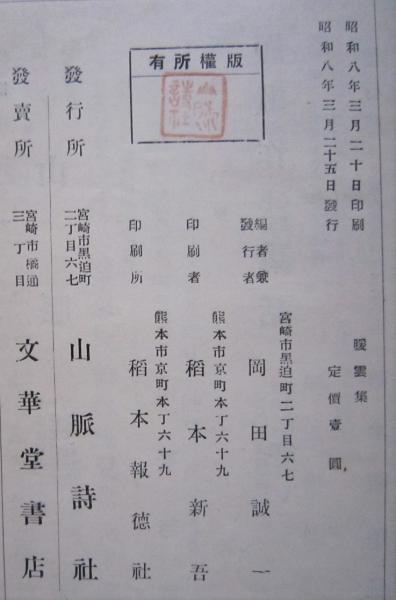 昭和八年三月二十日印刷
昭和八年三月二十五日發行
暖雲集
定價壹圓
版權所有
編者兼
發行者
宮崎市黒迫町二丁目六七
岡田誠一
印刷者
熊本市京町本丁六十九
稻本新吾
印刷所
熊本市京町本丁六十九
稻本報德社
發行所
宮崎市黒迫町
二丁目六七
山脈詩社
發賣所
宮崎市橘通
三丁目
文華堂書店